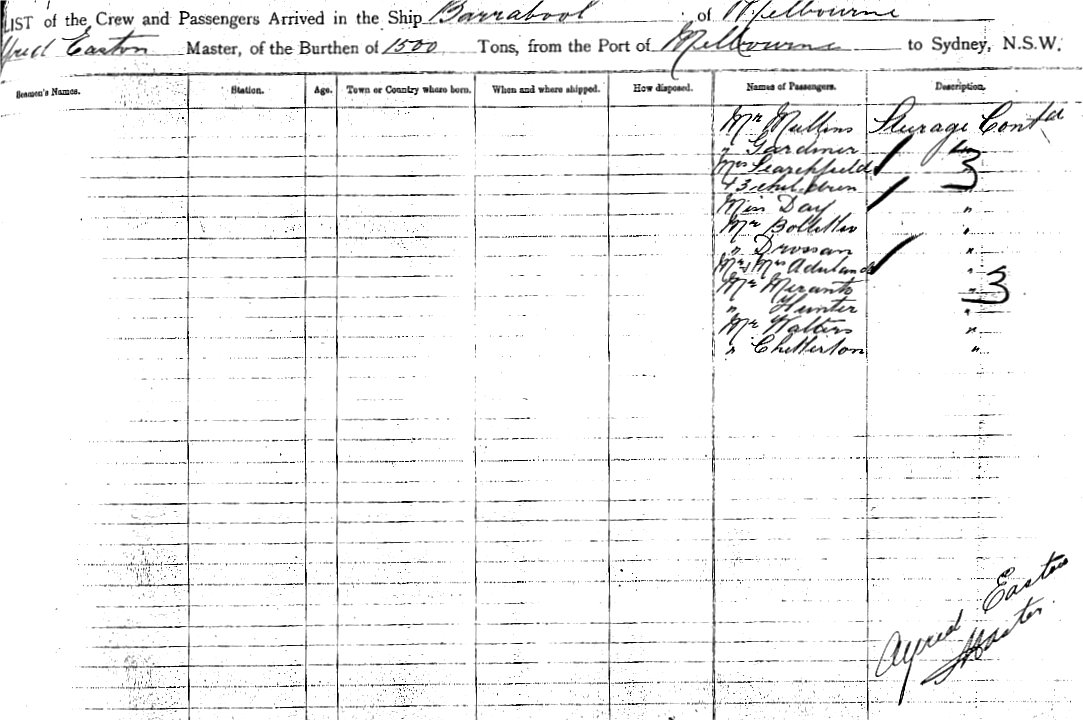 LIST of the Crew and Passengers Arrived in the Ship Barrabool of Melbourne
Alfred Easton Master, of the Burthen of 1500 Tons, from the Port of Melbourne to Sydney, N.S.W.
Seamen's Names. Station. Age. Town or Country where born. When and where shipped. How disposed. Names of Passengers. Description.
Mr Mullins Steurage Contd
" Gardiner
Mrs Searchfield "
+ 3 children 3 "
Miss Day "
Mr "
" "
Mr & Mrs "
Mr "
" Hunter 3 "
Mr Walters "
" Chetterton "
Alfred Easton
Master